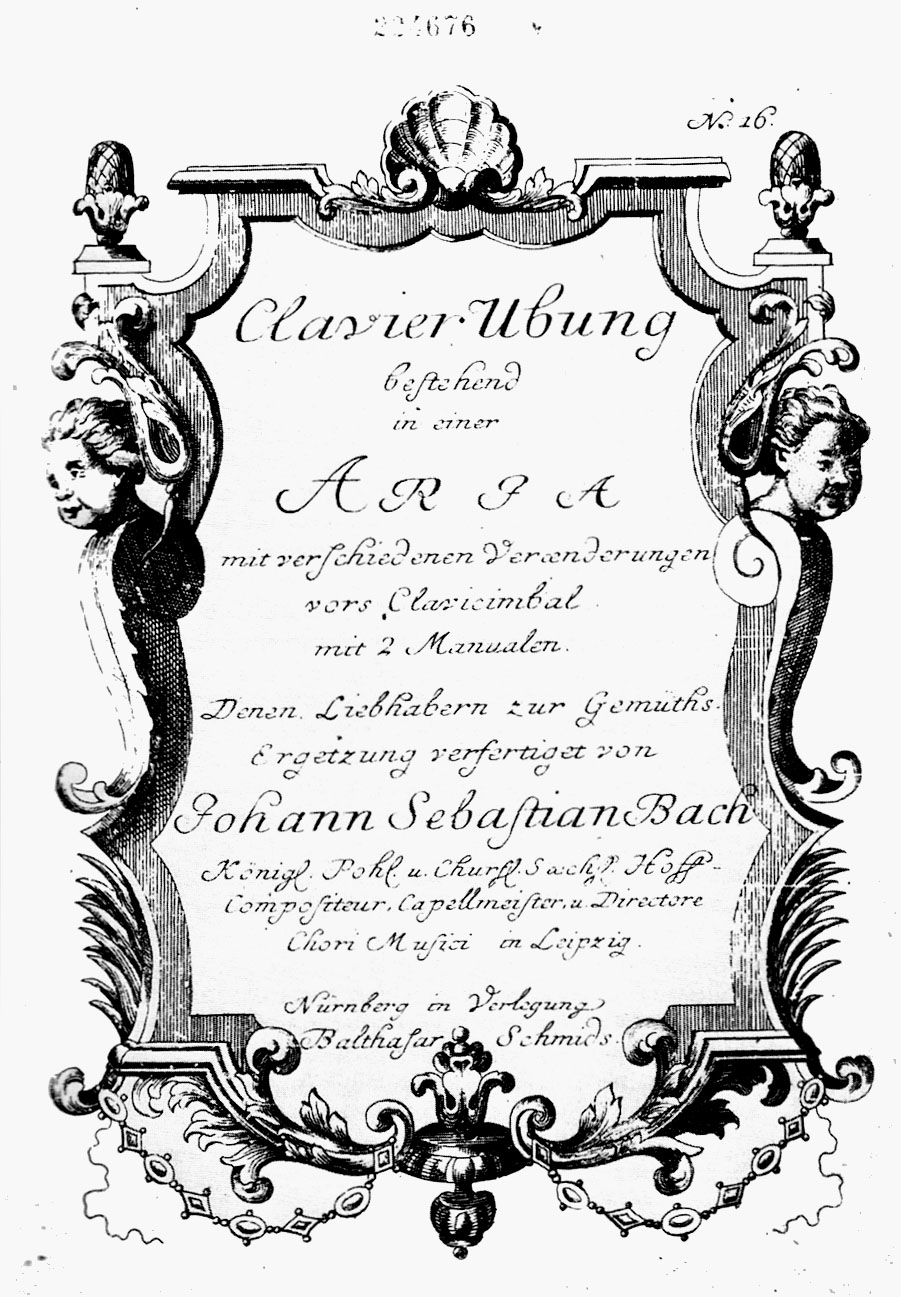 224676
No. 16.
Clavier Ubung
bestehend
in einer
ARIA
mit verschiedenen Veraenderungen
vors Clavicimbal
mit 2 Manualen.
Denen Liebhabern zur Gemüths-
Ergetzung verfertiget von
Johann Sebastian Bach
Königl. Pohl. u. Churfl. Saechs. Hoff-
Compositeur, Capellmeister, u. Directore
Chori Musici in Leipzig.
Nürnberg in Verlegung
Balthasar Schmids.